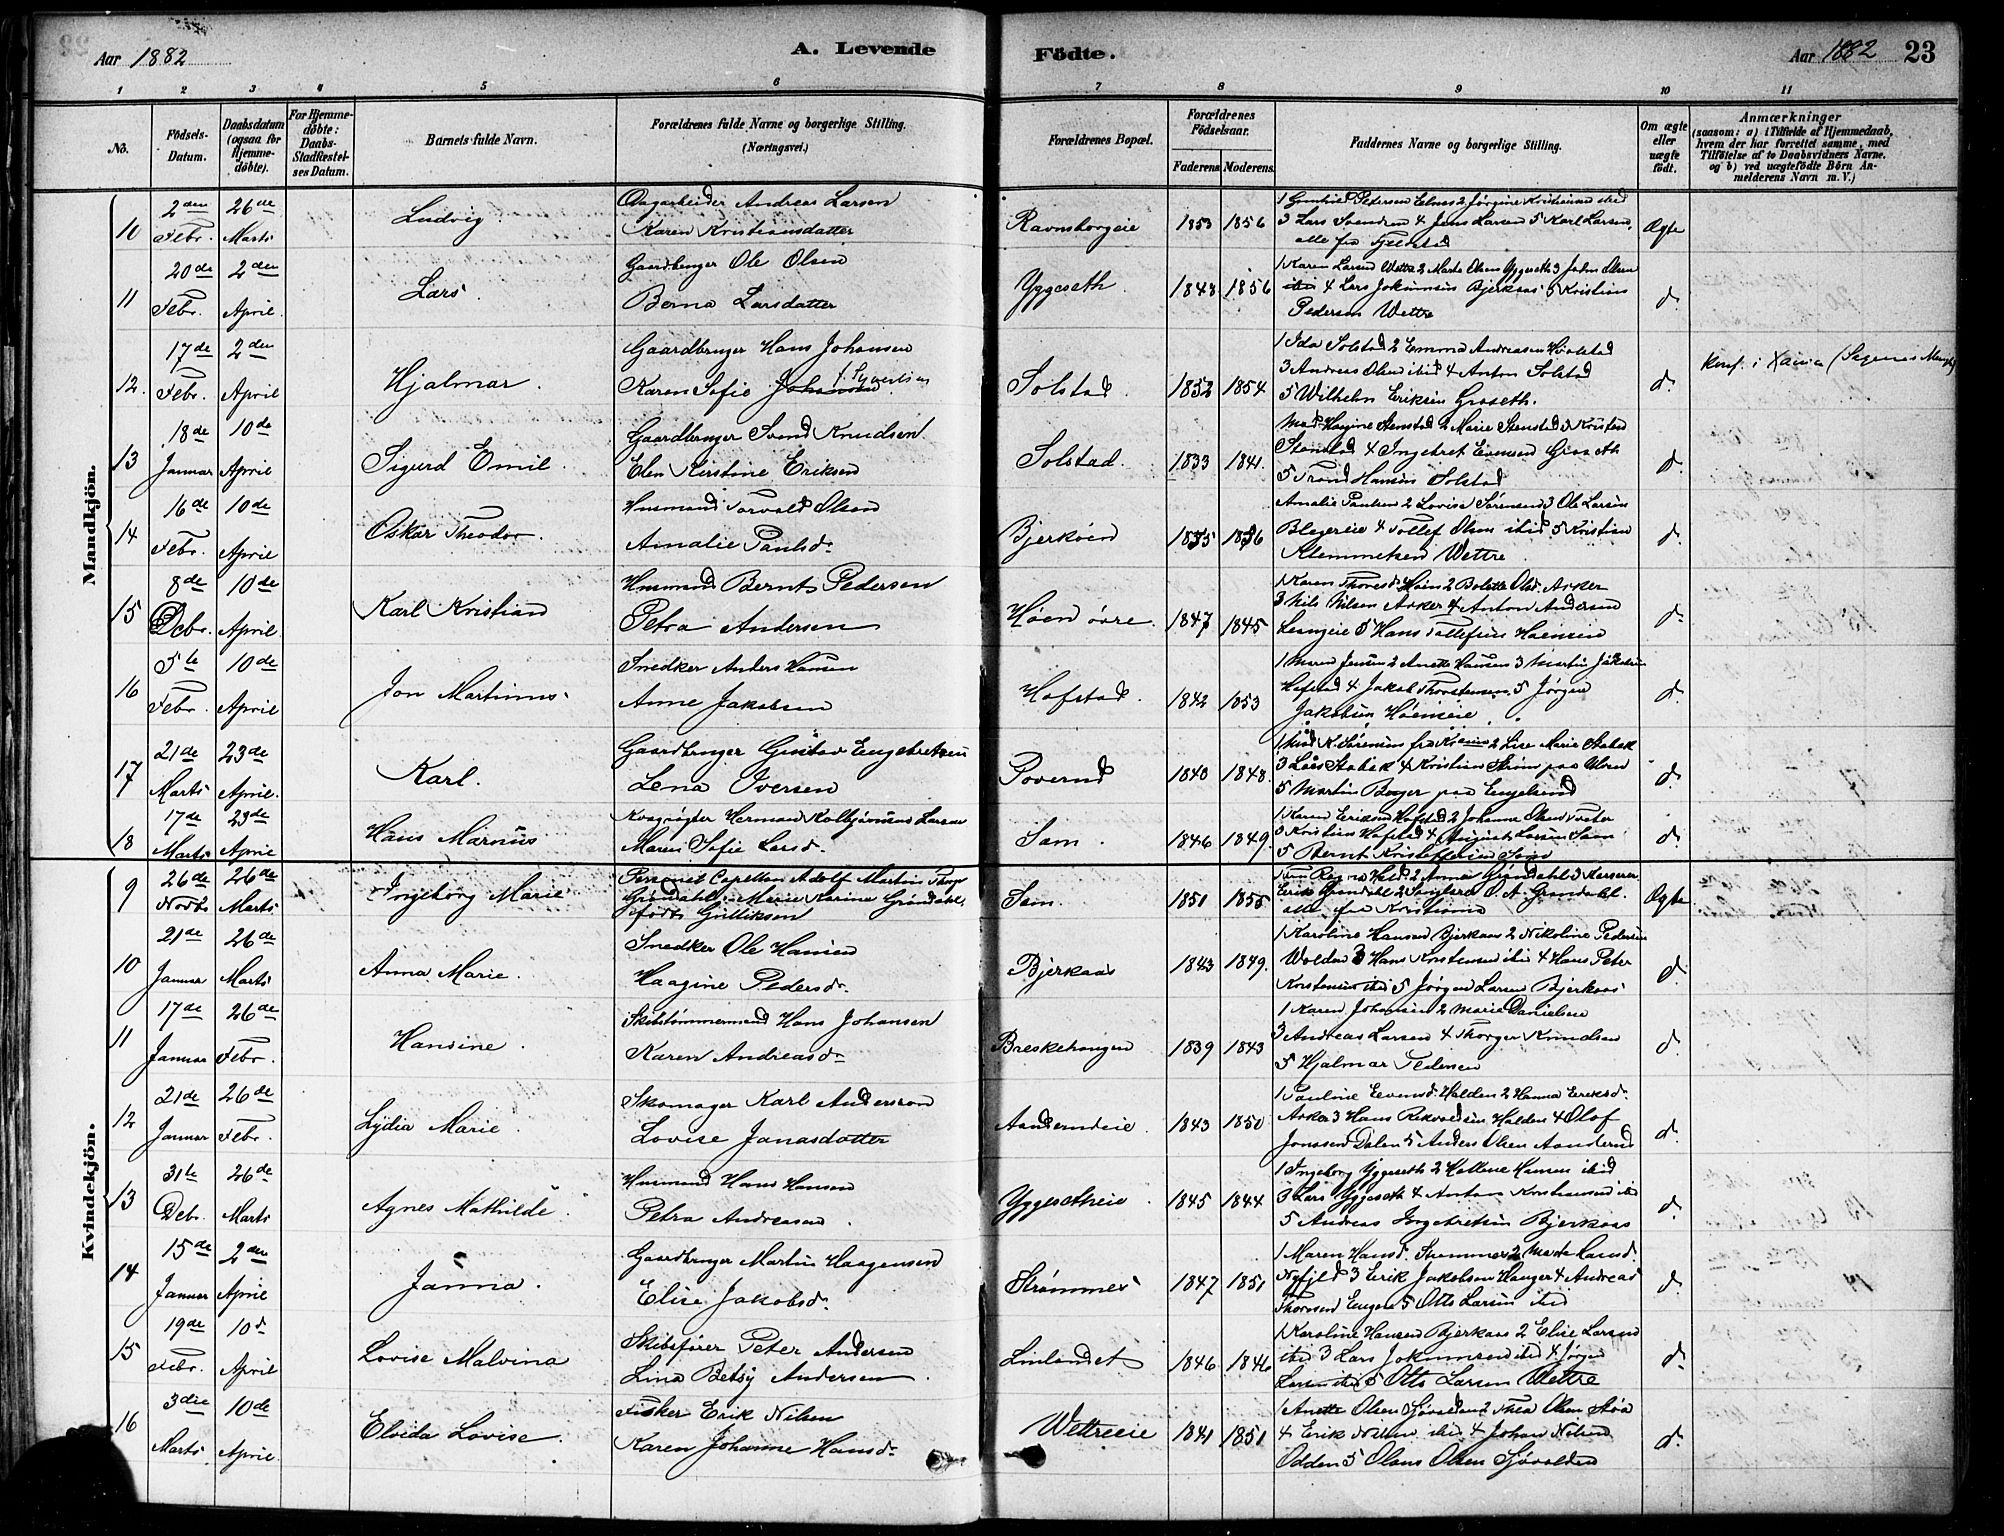 Aar 1882
A. Levende
Födte.
Aar 1882 23
1 2 3 4 5 6 7 8 9 10 11
No.
Födsels-Datum.
Daabsdatum (ogsaa for Hjemmedöbte).
For Hjemmedöbte: Daabs-Stadfæstelses Datum.
Barnets fulde Navn.
Forældrenes fulde Navne og borgerlige Stilling. (Næringsvei.)
Forældrenes Bopæl.
Forældrenes Födselsaar.
Faderens. Moderens.
Faddernes Navne og borgerlige Stilling.
Om ægte eller uægte födt.
Anmærkninger (saasom: a) i Tilfælde af Hjemmedaab, hvem der har forrettet samme, med Tilföielse af to Daabsvidners Navne, og b) ved uægtefödte Börn Anmelderens Navn m. V.)
Mandkjön.
10 2den Febr. 26de Marts Ludvig
Dagarbeider Andreas Larsen
Karen Kristiansdatter
Ravnsborgeie 1853 1856
3 Lars Svendsen 4 Jens Larsen 5 Karl Larsen,
Ægte
11 20de Febr. 2den April Lars.
Gaardbruger Ole Olsen
Berna Larsdatter
Yggeseth 1843 1856
1 Karen Larsen Wettre 2 Marte Olsen Yggeseth 3 John Olsen
ibid 4 Lars Johannesen Bjerkaas 5 Kristian
Pedersen Wettre
d.
12. 17de Febr. 2den April Hjalmar.
Gaardbruger Hans Johansen
Karen Sofie Johansen f. Syvertsen
Solstad. 1852 1854
1 Ida Solstad 2 Emma Andreasen
3 Andreas Olsen ibid 4 Anton Solstad
5 Wilhelm Eriksen Groseth.
d.
Konf. i Xania
13 18de Januar 10de April Sigurd Emil.
Gaardbruger Svend Knudsen.
Elen Kirstine Eriksen
Solstad. 1833 1841.
2 Marie Stenstad 3 Kristen
Stenstad 4 Ingebret Evensen Groseth
5 Trond Hansen Solstad
d.
14 16de Febr. 10de April Oskar Theodor.
Husmand Torvald Olsen
Amalie Paulsd.
Bjerkøen 1835 1836
Amalie Paulsen 2 Lovise Sørensen 3 Ole Larsen
4 Tollef Olsen ibid 5 Kristian
Klemmetsen Wettre.
d.
15 8de Debr. 10de April. Karl Kristian
Husmand Bernt Pedersen
Petra Andersen
Høen øvre. 1847 1845
1 Karen Thoresd. Høen 2 Bolette Olsd. Arker
3 Nils Nilsen Arker 4 Anton Andersen
5 Hans Tollefsen
d.
16 5te Febr. 10de April Jon Martinus.
Snedker Anders Hansen
Anne Jakobsen
Hofstad. 1842 1853
1 Maren Jensen 2 Anette Hansen 3 Martin Jakobsen
Hofstad 4 Jakob Thorstensen. 5 Jørgen
Jakobsen Høenseie.
d.
17 21de Marts 23de April. Karl.
Gaardbruger Gustav Engebretsen
Lena Iversen
Poverud 1840 1848.
K. Sørensen fra Xania 2 Lise Marie Stabæk
3 Lars Stabæk 4 Kristian Strøm paa
5 Martin Berger paa Engelsrud
d.
18 17de Marts 23de April Hans Marnus
Herman Kolbjørnsen Larsen
Maren Sofie Larsd.
Sem. 1846 1849.
1 Karen Eriksen Hofstad 2 Johanne Olsen
3 Kristian Hofstad 4 August Larsen Sem
5 Bernt Kristoffersen Sem
d.
Kvindekjön.
9 26de Novbr. 26de Marts Ingeborg Marie
Personel Capellan Adolf Martin
Grøndahl, Marie Karine Grøndahl,
født Gulliksen
Sem. 1851 1855
2 Anna Grøndahl 3
Erik Grøndahl A. Grøndahl.
alle fra Kristiania
Ægte
10 21de Januar 26de Marts Anna Marie.
Snedker Ole Hansen
Haagine Pedersd.
Bjerkaas 1843 1849.
1 Karoline Hansen Bjerkaas 2 Nikoline Pedersen
Wolden 3 Hans Kristensen ibid 4 Hans Peter
Kristensen ibid 5 Jørgen Larsen Bjerkaas
d.
11 17de Januar 26de Febr. Hansine.
Skibstømmermand Hans Johansen
Karen Andreasd.
Breskehaugen 1839 1843
1 Karen Johansen 2 Marie Danielsen
3 Andreas Larsen 4 Thorger Knudsen
5 Hjalmar Pedersen
d.
12 21de Januar 26de Febr. Lydia Marie.
Skomager Karl Andersson
Lovise Janasdotter
Aanderudeie. 1843 1850
1 Pauline Evensd. Halden 2 Hanna Eriksd.
Arker 3 Hans Halden 4 Olof
Jonassen Dalen 5 Anders Olsen Aanderud
d.
13 31te Debr. 26de Marts Agnes Mathilde.
Husmand Hans Hansen
Petra Andreasen.
Yggesetheie. 1845 1844
1 Ingeborg Yggeseth 2 Hansen ibid
3 Lars Yggeseth 4 Anton Kristiansen ibid
5 Andreas Ingebretsen Bjerkaas
d.
14 15de Januar 2den April Janna.
Gaardbruger Martin Haagensen
Elise Jakobsd.
Strømmen 1847 1851
1 Maren Hansd. Strømmen 2 Marte Hansd.
3 Erik Jakobsen Hauger 4 Andreas
Thoresen 5 Otto Larsen ibid
d.
15 19de Febr. 10d April Lovise Malvina
Skibsfører Peter Andersen
Lina Betsy Andersen.
Linlandet 1846 1846
1 Karoline Hansen Bjerkaas 2 Elise Larsen
ibid 3 Lars Johannesen ibid 4 Jørgen
Larsen ibid 5 Otto Larsen Wettre
d.
16 3die Marts 10de April. Elvida Lovise.
Fisker Erik Nilsen
Karen Johanne Hansd.
Wettreeie 1841 1851
1 Anette Olsen Sjøvolden 2 Thea Olsen
4 Erik Nilsen ibid 4 Johan Nilsen
Odden 5 Olaus Olsen Sjøvolden
d.